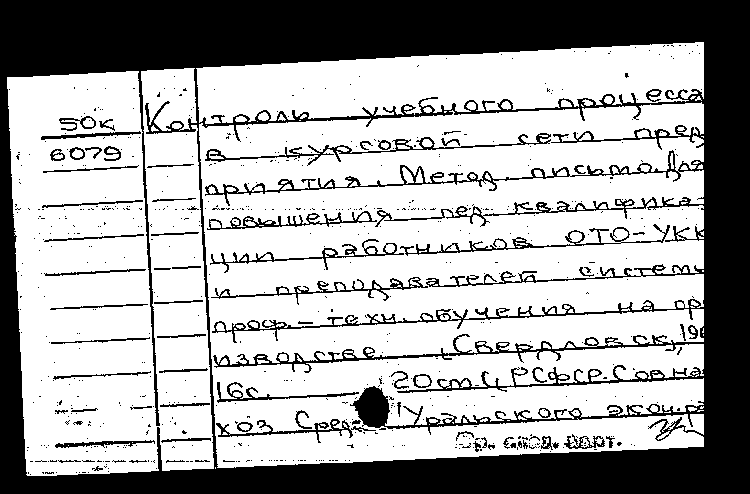 50к Контроль учебного процесса
6079 в курсовой сети пред
приятия. Метод. письмо. Для
повышения пед. квалифика-
ции работников ОТО-УКК
и преподавателей системы
проф.-техн. обучения на пр
изводстве. Свердловск, 19
16с. 20см (РСФСР. Совнар
хоз Сред- Уральского экон. р